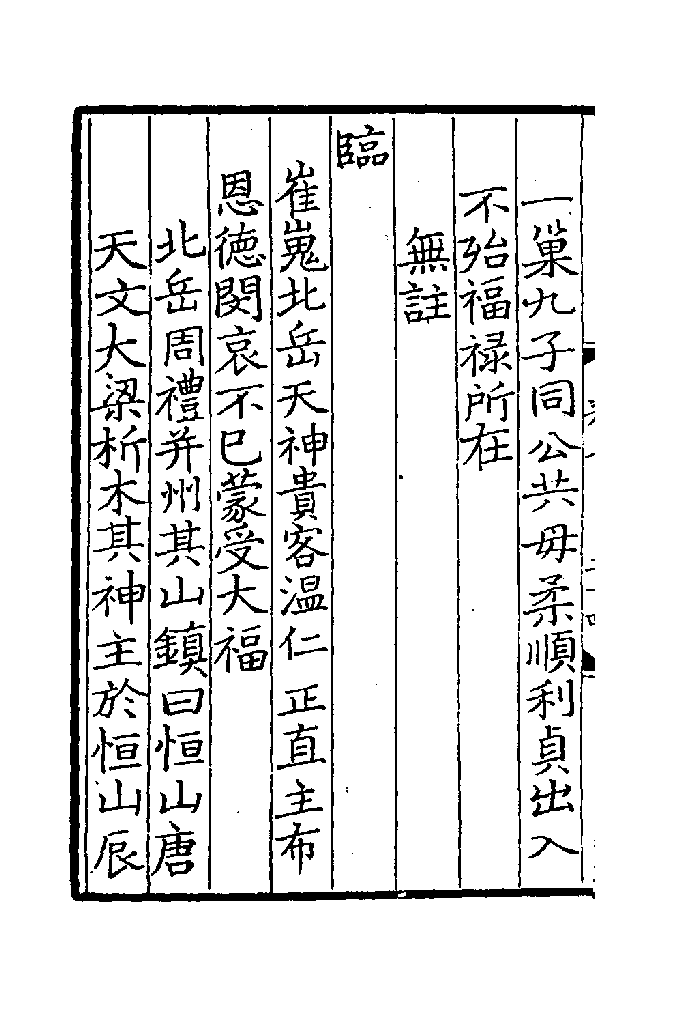 一巢九子同公共母柔順利貞出入
不殆福禄所在
無註
臨
崔嵬北岳天神貴客温仁正直主布
恩德閔哀不已蒙受大福
北岳周禮并州其山鎮曰恒山唐
天文大梁析木其神主於恒山辰